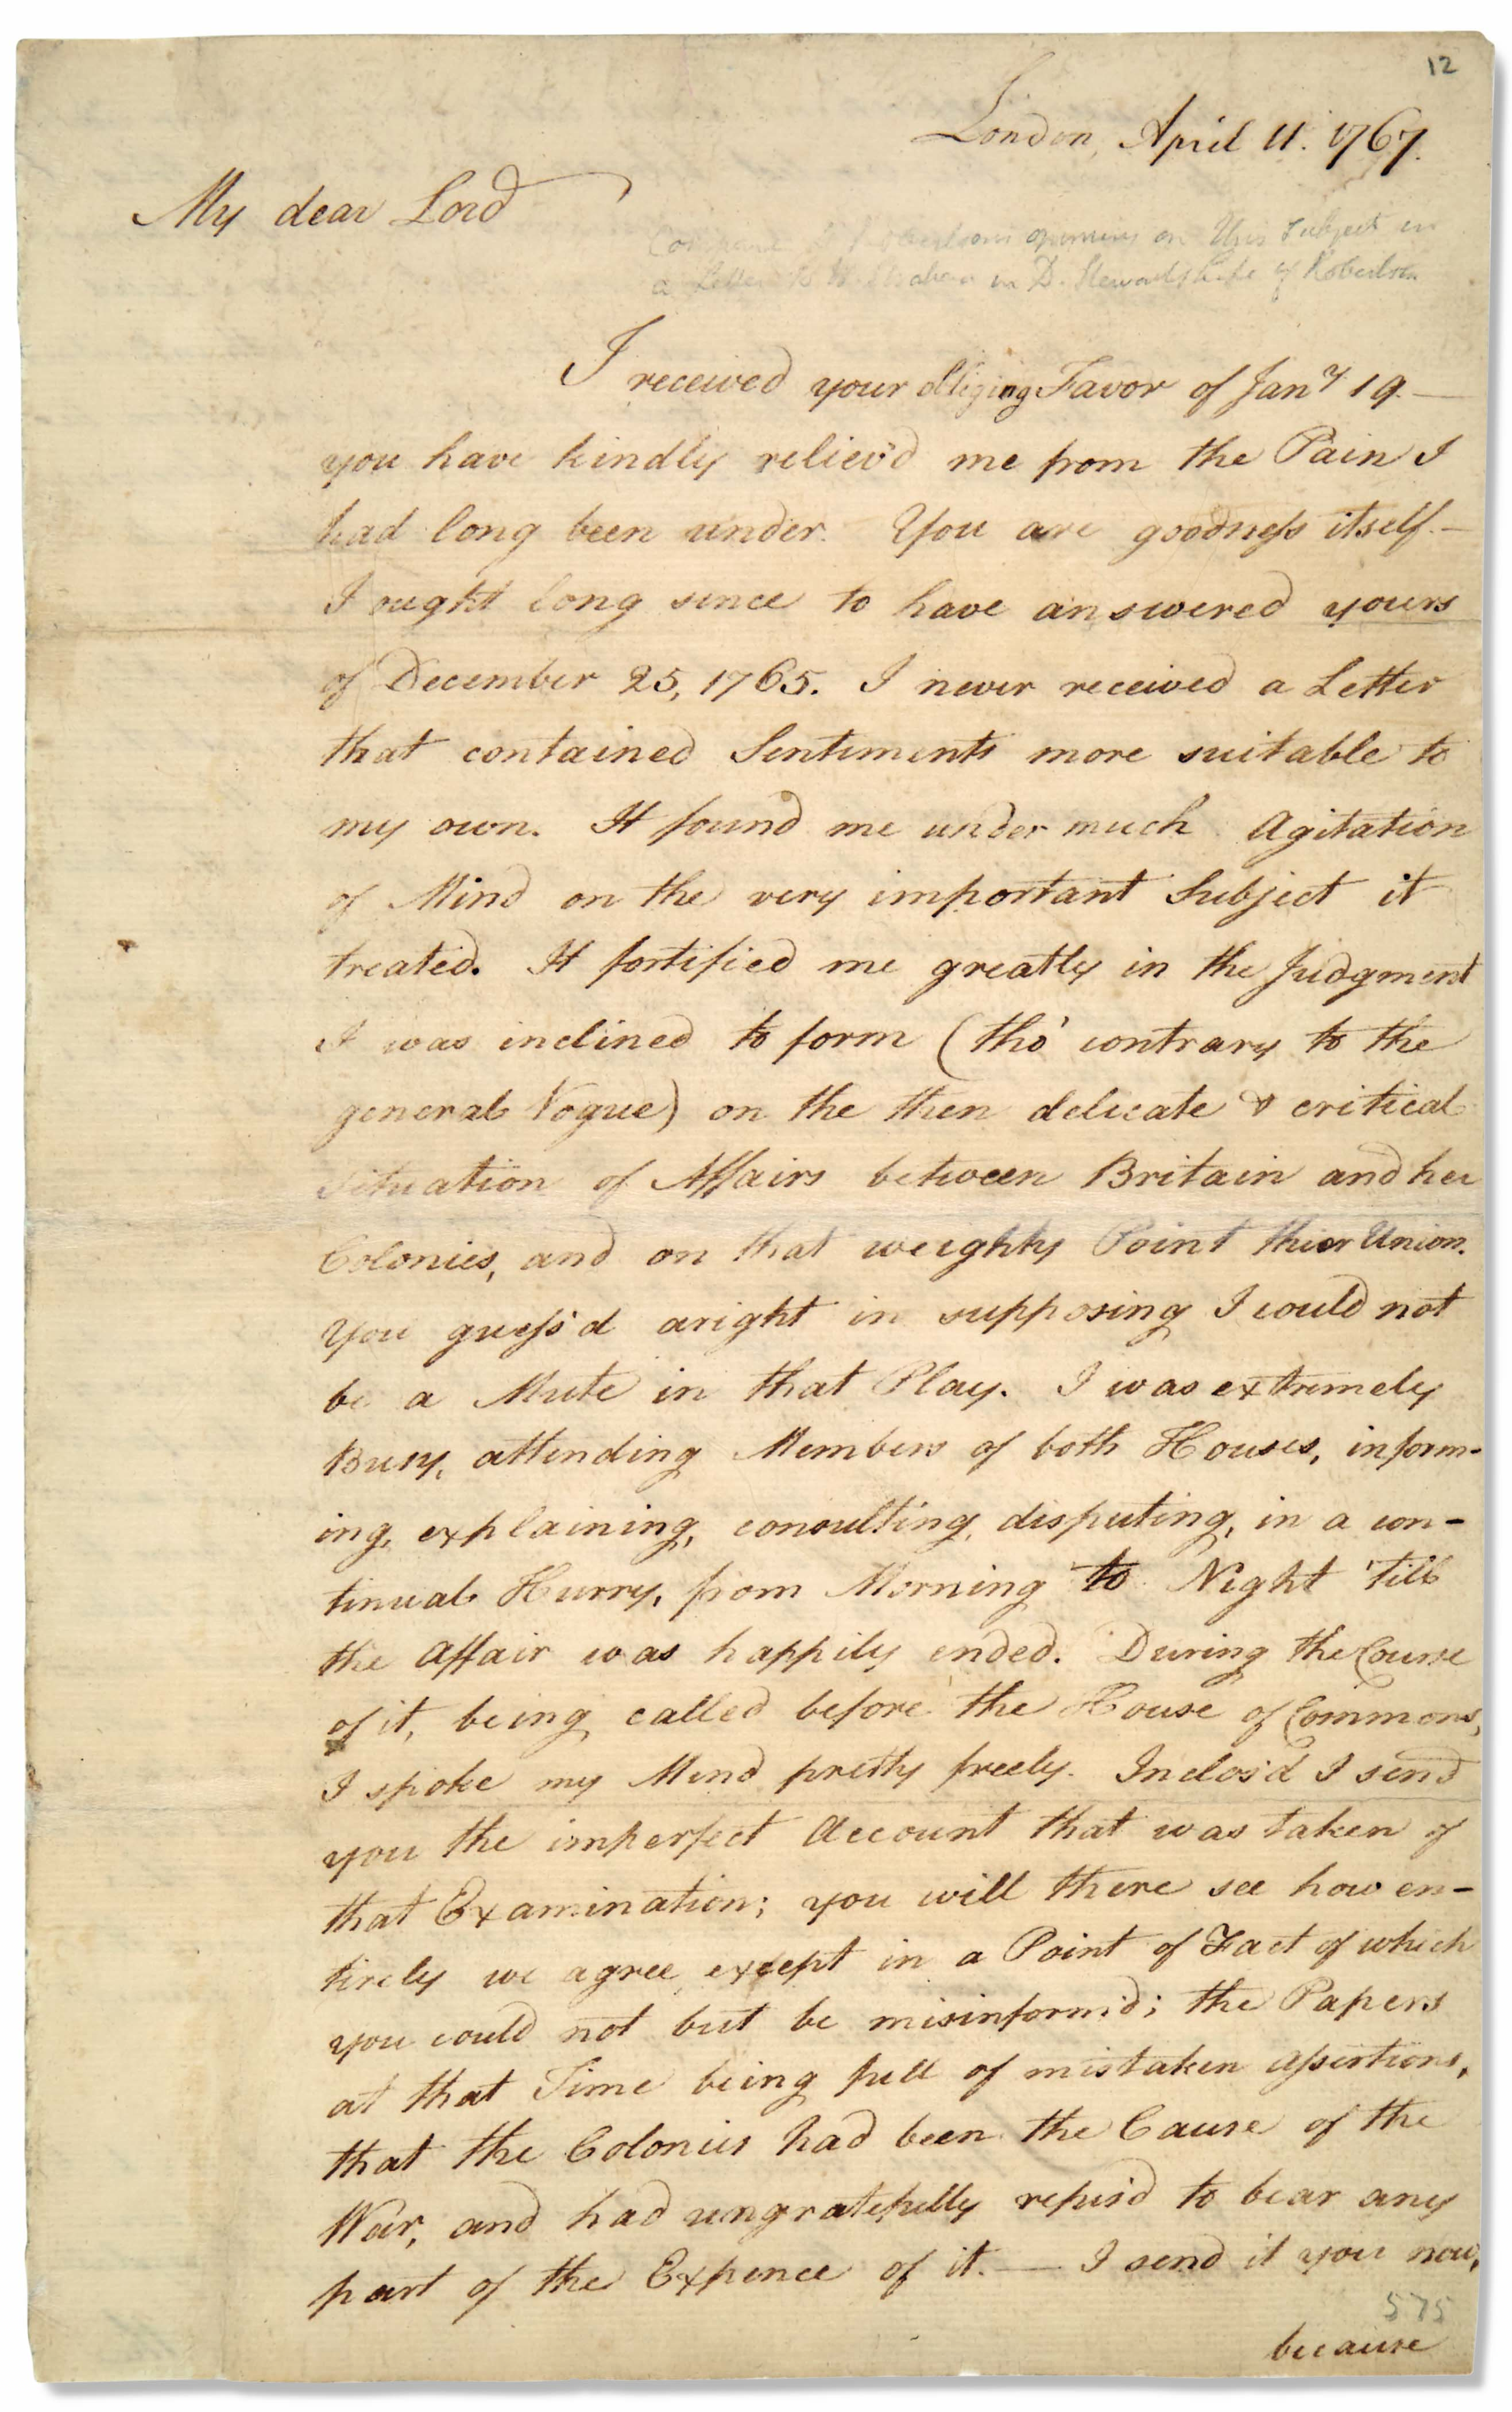 12
London, April 11. 1767.
My dear Lord
Compare Dr Robertsons opinions on this subject in
a Letter to W. Strahan in D. Stewarts Life of Robertson
I received your obliging Favor of Jany. 19.—
you have kindly reliev'd me from the Pain I
had long been under. You are goodness itself.—
I ought long since to have answered yours
of December 25, 1765. I never received a Letter
that contained Sentiments more suitable to
my own. It found me under much Agitation
of Mind on the very important Subject it
treated. It fortified me greatly in the Judgment
I was inclined to form (tho' contrary to the
general Vogue) on the then delicate & critical
Situation of Affairs between Britain and her
Colonies, and on that weighty Point their Union.
You guess'd aright in supposing I could not
be a Mute in that Play. I was extremely
Busy, attending Members of both Houses, inform-
ing, explaining, consulting, disputing, in a con-
tinual Hurry, from Morning to Night 'till
the Affair was happily ended. During the Course
of it, being called before the House of Commons,
I spoke my Mind pretty freely. Inclos'd I send
you the imperfect Account that was taken of
that Examination; you will there see how en-
tirely we agree, except in a Point of Fact of which
you could not but be misinform'd; the Papers
at that Time being full of mistaken Assertions,
that the Colonies had been the Cause of the
War, and had ungratefully refus'd to bear any
part of the Expence of it.— I send it you now,
575
because